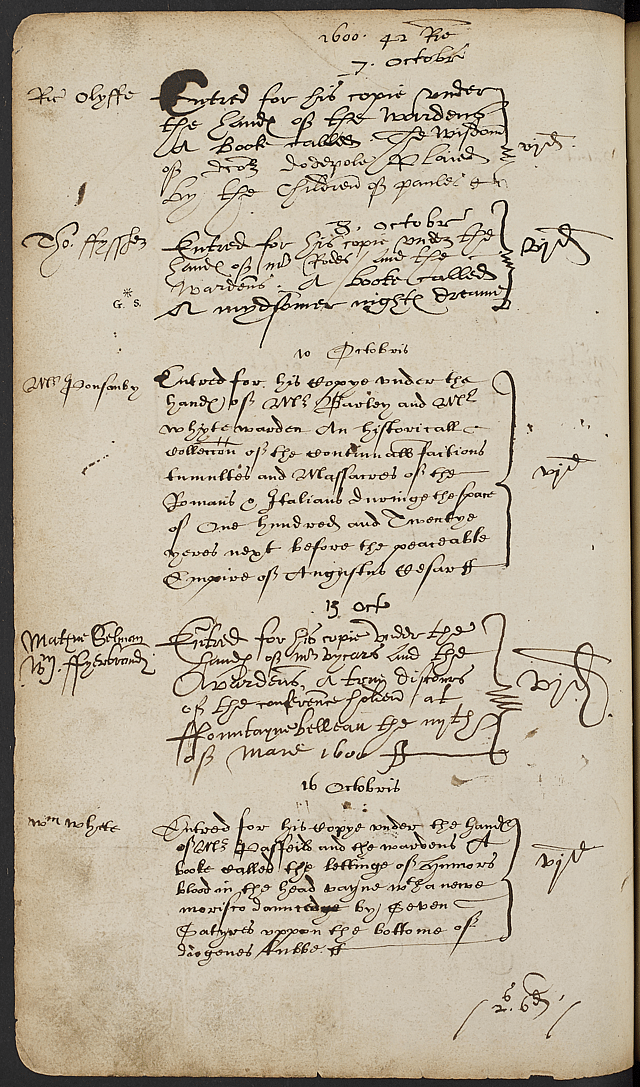 1600. 42 Re
7. Octobr
Ric Olyffe
Entred for his copie vnder
the hand of the Wardens
A booke called The Wisdom
of doctor dodepole Plaied
by the Children of paules &c
vjd
8. octobr
Tho. ffyssher
Entred for his copie vnder the
hand of mr Rodes and the
Wardens. A booke called
A mydsomer nightes dreame
vjd
G. S.
10 Octobris
Mr Ponsonby
Entred for his Coppye vnder the
handes of Mr Hartey and Mr
whyte warden An historicall
Collection of the Continuall factions
tumultes and Massacres of the
Romans & Italians duringe the space
of One hundred and Twentye
yeres next before the peaceable
Empire of Augustus Cesar
vjd
15 Oct
Mathue Selman
Wm. ffyerbrand
Entred for his copie vnder the
handes of mr vycars and the
Wardens. A true discours
of the conference holden at
ffountaynebelleau the iiijth
of Maie 1600
vjd
16 Octobris
Wm whyte
Entred for his Coppye vnder the handes
of Mr Pasfeild and the wardens A
booke called the lettinge of humors
blood in the head vayne wth a newe
morisco daunced by Seven
Satyres vppon the bottome of
diogenes tubbe
vjd
2s. 6d